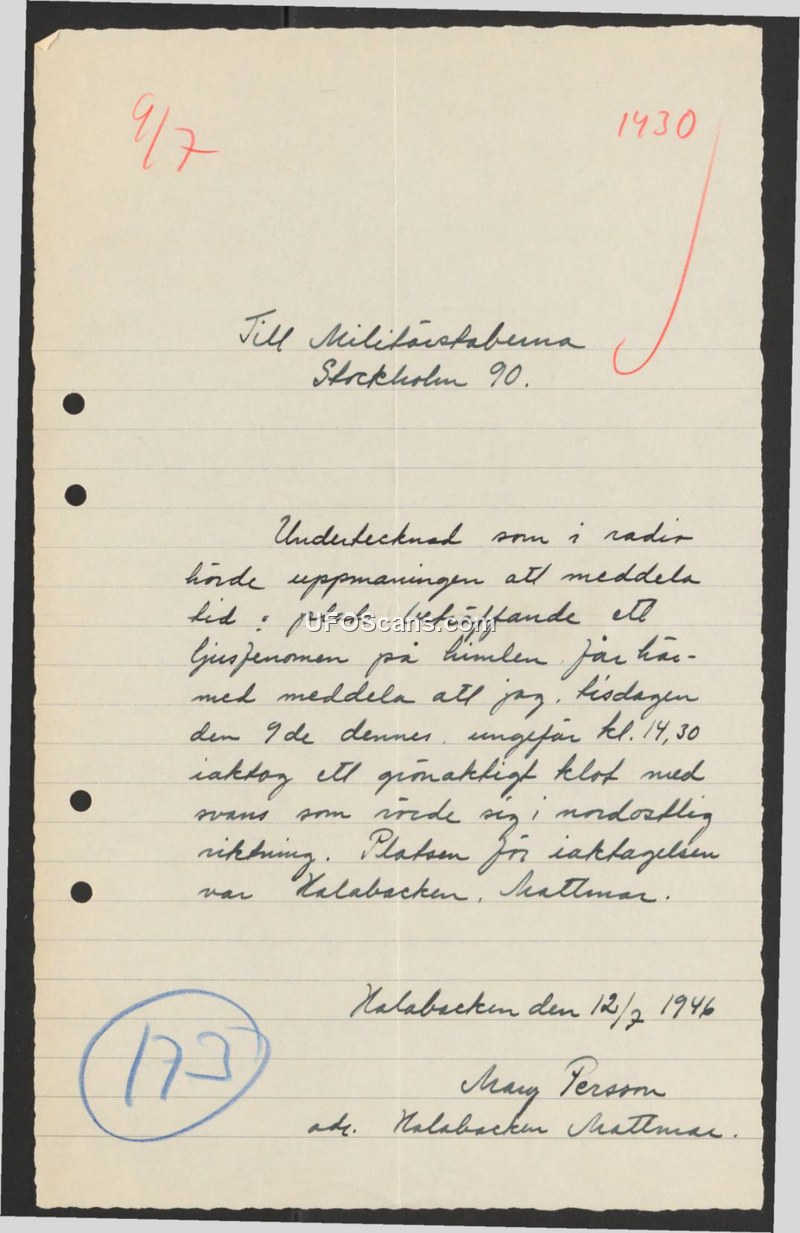 9/7
1430
Till Militärstaberna
Stockholm 90.
Undertecknad som i radio
hörde uppmaningen att meddela
tid o. plats beträffande ett
ljusfenomen på himlen får här-
med meddela att jag, tisdagen
den 9de dennes, ungefär kl. 14,30
iaktog ett grönaktigt klot med
svans som rörde sig i nordostlig
riktning. Platsen för iaktagelsen
var Halabacken, Mattmar.
Halabacken den 12/7 1946
Mary Persson
adr. Halabacken Mattmar.
173
UFOScans.com